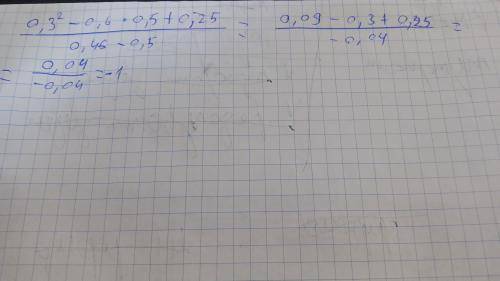 (0,3² − 0,6 · 0,5 + 0,25) / (0,46 − 0,5) = (0,09 − 0,3 + 0,25) / (−0,04) =
= 0,04 / −0,04 = −1